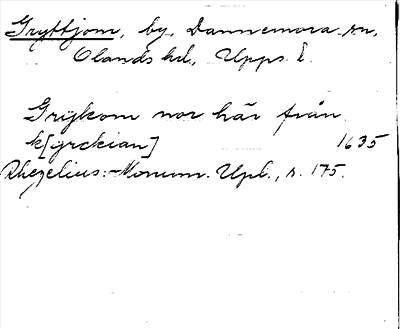 Gryttjom, by, Dannemora sn,
Olands hd, Upps. l.
Grijkom nor här från
k[yrckian] 1635
Rhezelius: Monum. Upl., s. 175.